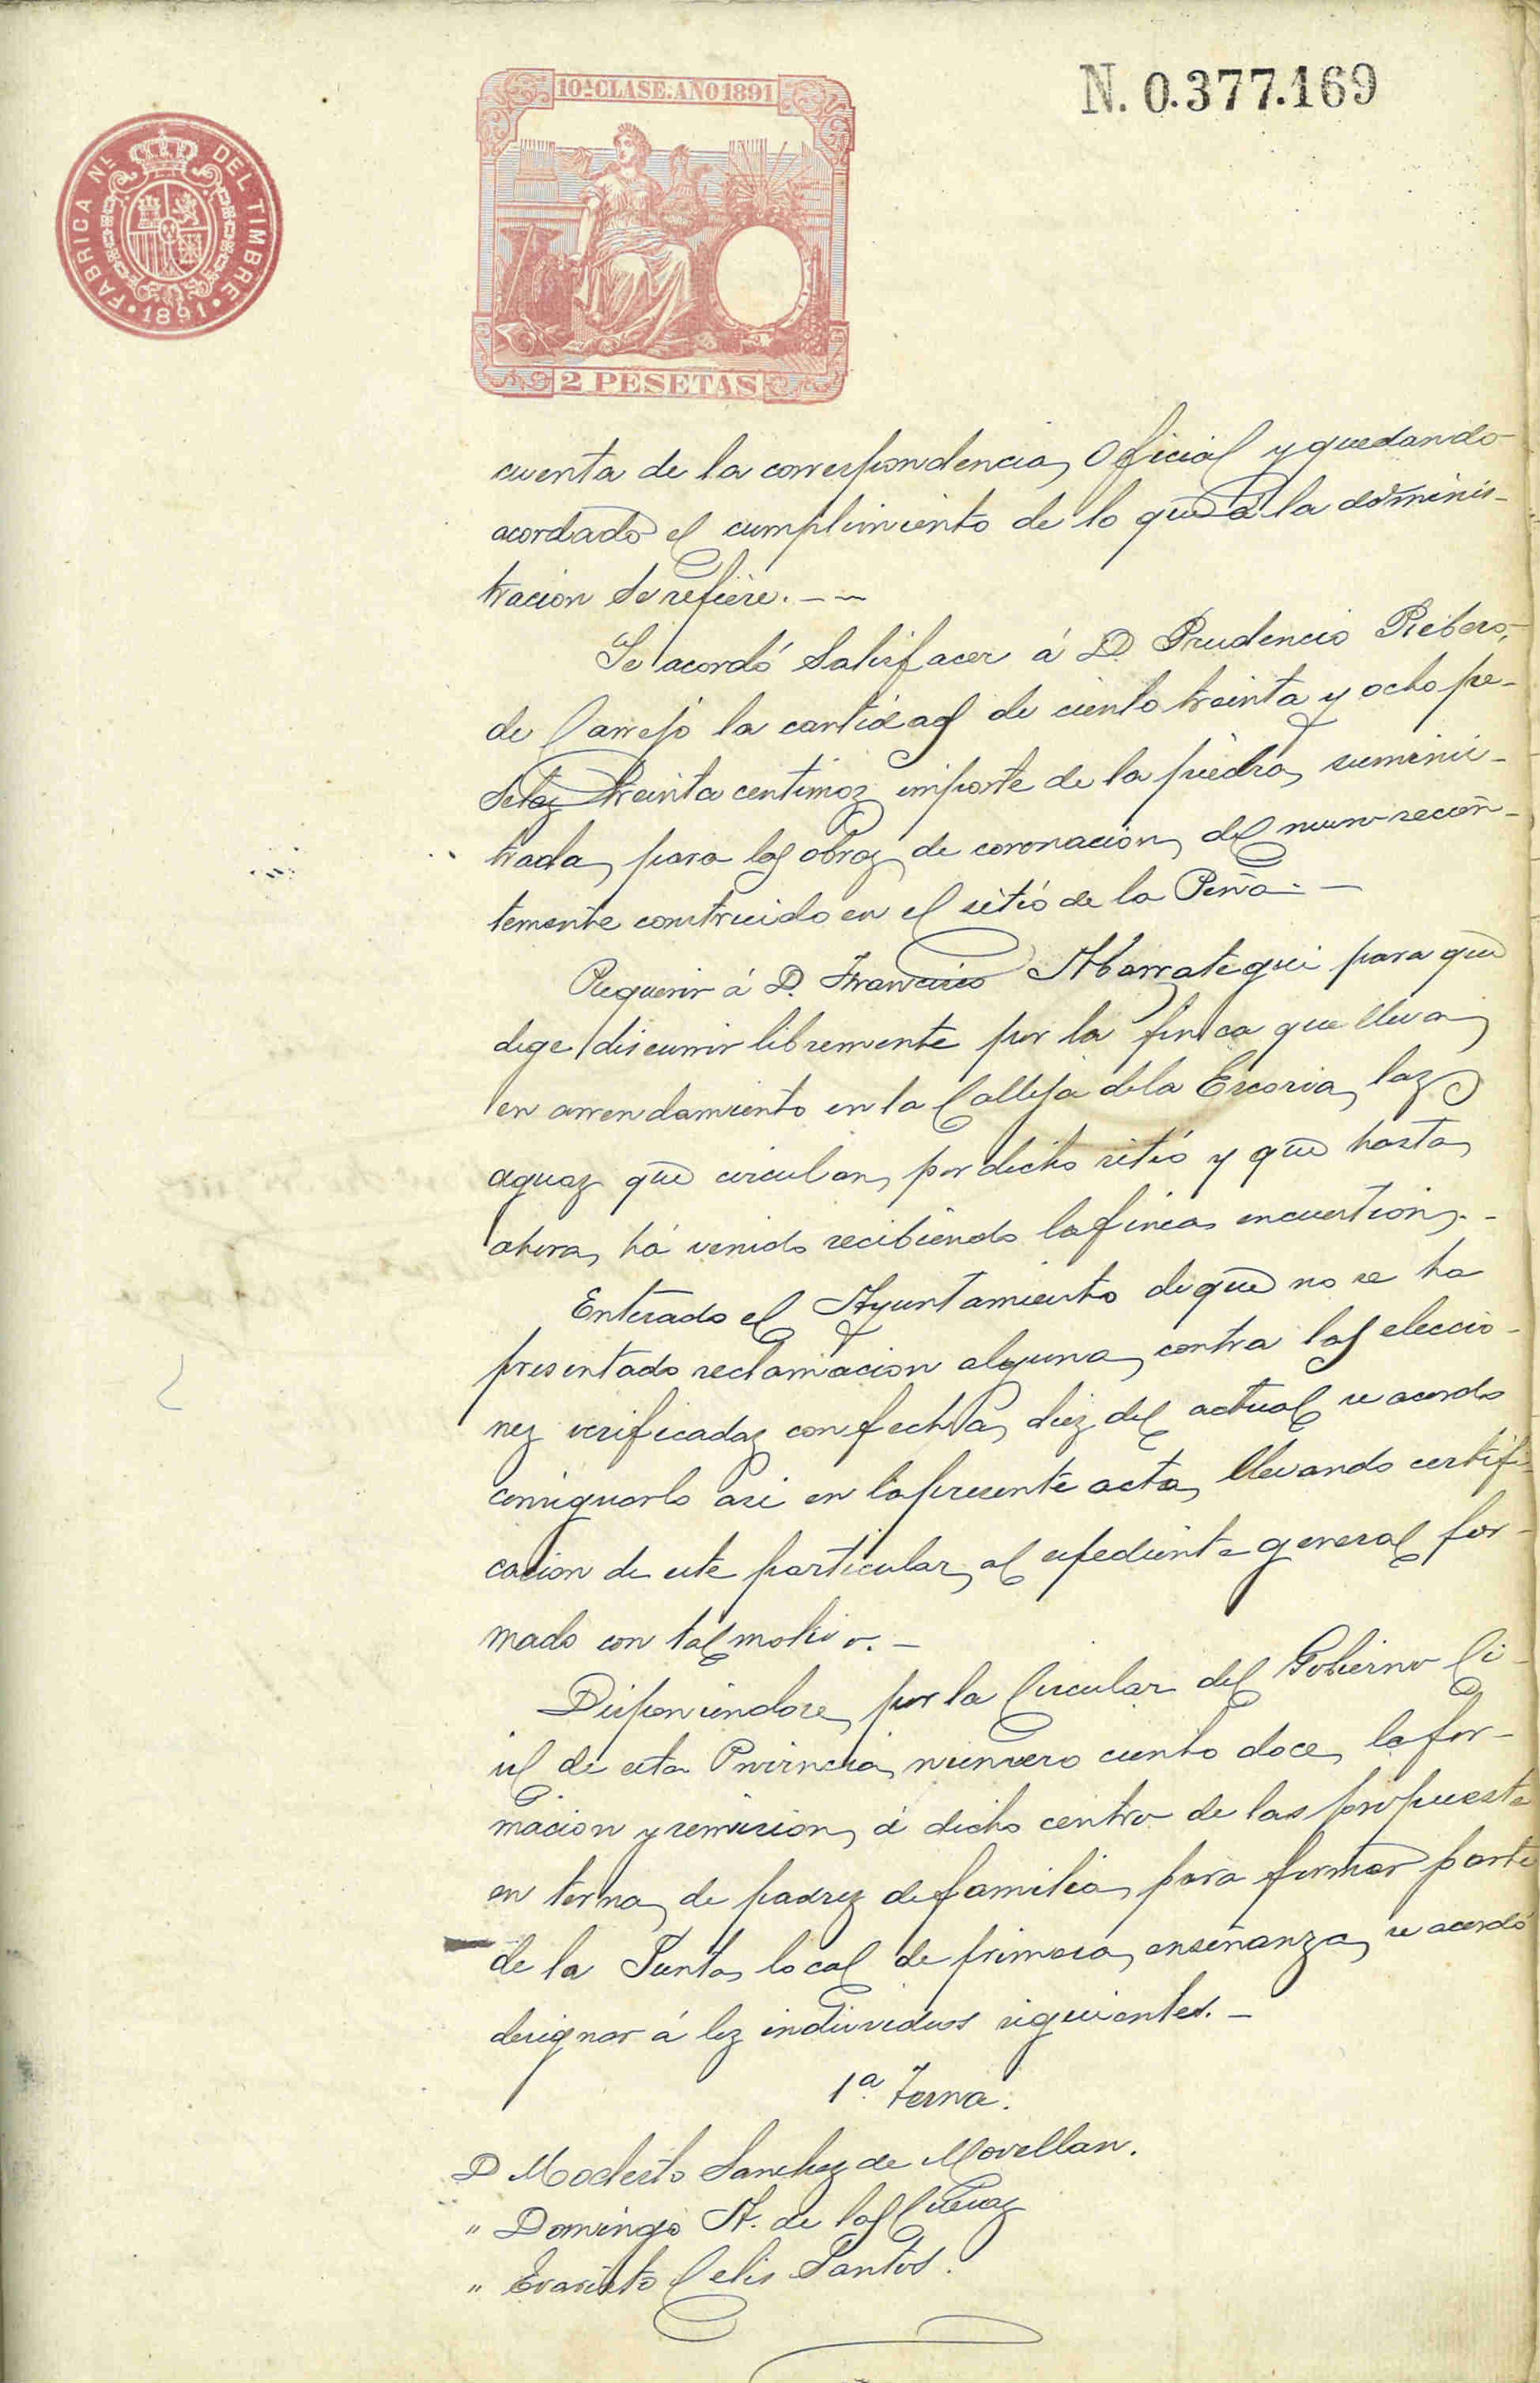 N. 0.377.169
10ª CLASE. AÑO 1891
FABRICA NL. DEL TIMBRE
1891
2 PESETAS
cuenta de la correspondencia Oficial y quedando
acordado el cumplimiento de lo que á la adminis-
tracion se refiere. --
Se acordó satisfacer á D. Prudencio Ribero,
de Carrejo la cantidad de ciento treinta y ocho pe-
setas treinta centimos importe de la piedra suminis-
trada para las obras de coronacion del muro recien-
temente construido en el sitio de la Peña. -
Requerir á D. Francisco Abarrategui para que
dege discurrir libremente por la finca que lleva
en arrendamiento en la Calleja de la Escoria, las
aguas que circulan por dicho sitió y que hasta
ahora há venido recibiendo la finca en cuestion. -
Enterado el Ayuntamiento de que no se ha
presentado reclamacion alguna contra las eleccio-
nes verificadas con fecha diez del actual se acordo
consignarlo asi en la presente acta, llevando certifi-
cacion de este particular al espediente general for-
mado con tal motivo. -
Disponiendose por la Circular del Gobierno Ci-
vil de esta Provincia numero ciento doce, la for-
macion y remision á dicho centro de las propuesta
en terna de padres de familia para formar parte
de la Junta local de primera enseñanza, se acordó
designar á los individuos siguientes. -
1ª Terna.
D Modesto Sanchez de Movellan.
" Domingo A. de las Cuevas
" Evaristo Celis Santos.